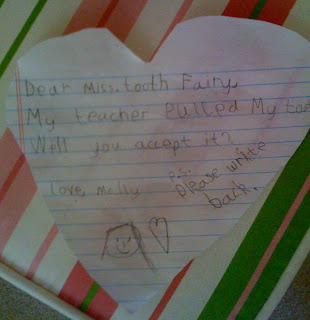 Dear Miss. tooth Fairy,
My teacher pulled My
Will you accept it?
Love, Molly
P.S.
please write
back.